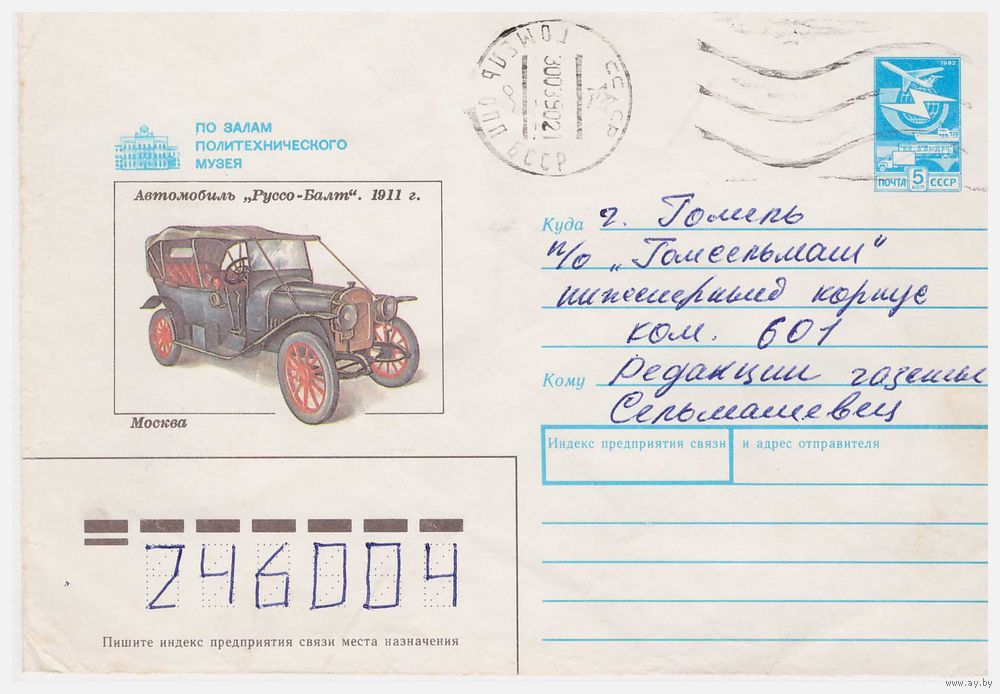 ПО ЗАЛАМ
ПОЛИТЕХНИЧЕСКОГО
МУЗЕЯ
Автомобиль „Руссо-Балт“. 1911 г.
Москва
ГОМЕЛЬ ПЖО
СССР
БССР
30039021
1982
ПОЧТА 5 КОП СССР
Куда г. Гомель
п/о „Гомсельмаш“
инженерный корпус
ком. 601
Кому Редакции газеты
Сельмашевец
Индекс предприятия связи и адрес отправителя
246004
Пишите индекс предприятия связи места назначения
www.ay.by